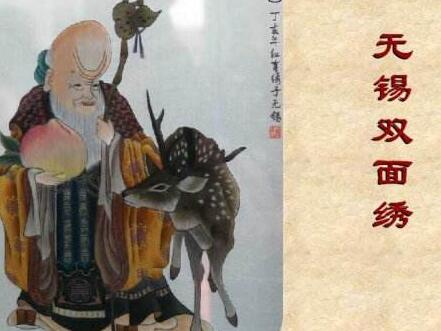 无锡双面绣
丁亥年红喜绣于无锡